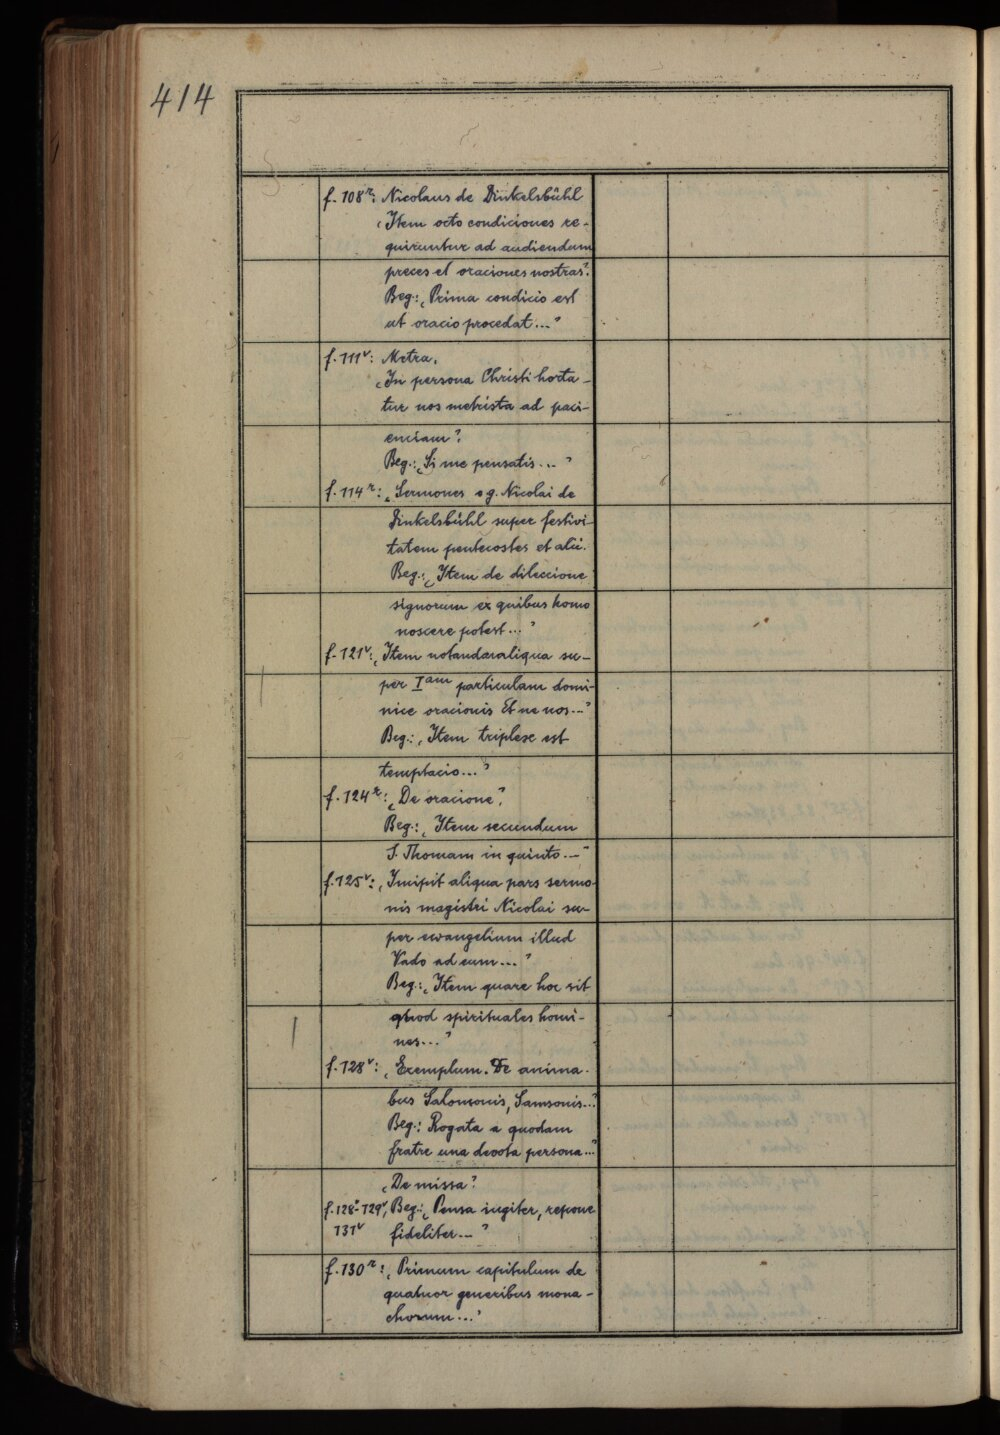 414
f. 108r: Nicolaus de Dinkelsbühl
„Item octo condiciones re-
quiruntur ad audiendum
preces et oraciones nostras".
Beg.: „Prima condicio est
ut oracio procedat..."
f. 111v: Metra.
„In persona Christi horta-
tur nos metrista ad paci-
enciam".
Beg.: „Si me pensatis..."
f. 114r: „Sermones eg. Nicolai de
Dinkelsbühl super festivi-
tatem pentecostes et alii.
Beg.: „Item de dileccione
signorum ex quibus homo
noscere potest..."
f. 121v: „Item notandar aliqua su-
per Iam particulam domi-
nice oracionis Et ne nos..."
Beg.: „Item triplex est
temptacio..."
f. 124r: „De oracione".
Beg.: „Item secundum
S. Thomam in quinto..."
f. 125v: „Incipit aliqua pars sermo-
nis magistri Nicolai su-
per ewangelium illud
Vado ad eum..."
Beg.: „Item quare hoc sit
quod spirituales homi-
nes..."
f. 128v: „Exemplum. De anima-
bus Salomonis, Samsonis..."
Beg.: Rogata a quodam
fratre una devota persona..."
„De missa".
f. 128v-129v, Beg.: „Pensa iugiter, repone
131v fideliter..."
f. 130r: „Primum capitulum de
quatuor generibus mona-
chorum..."